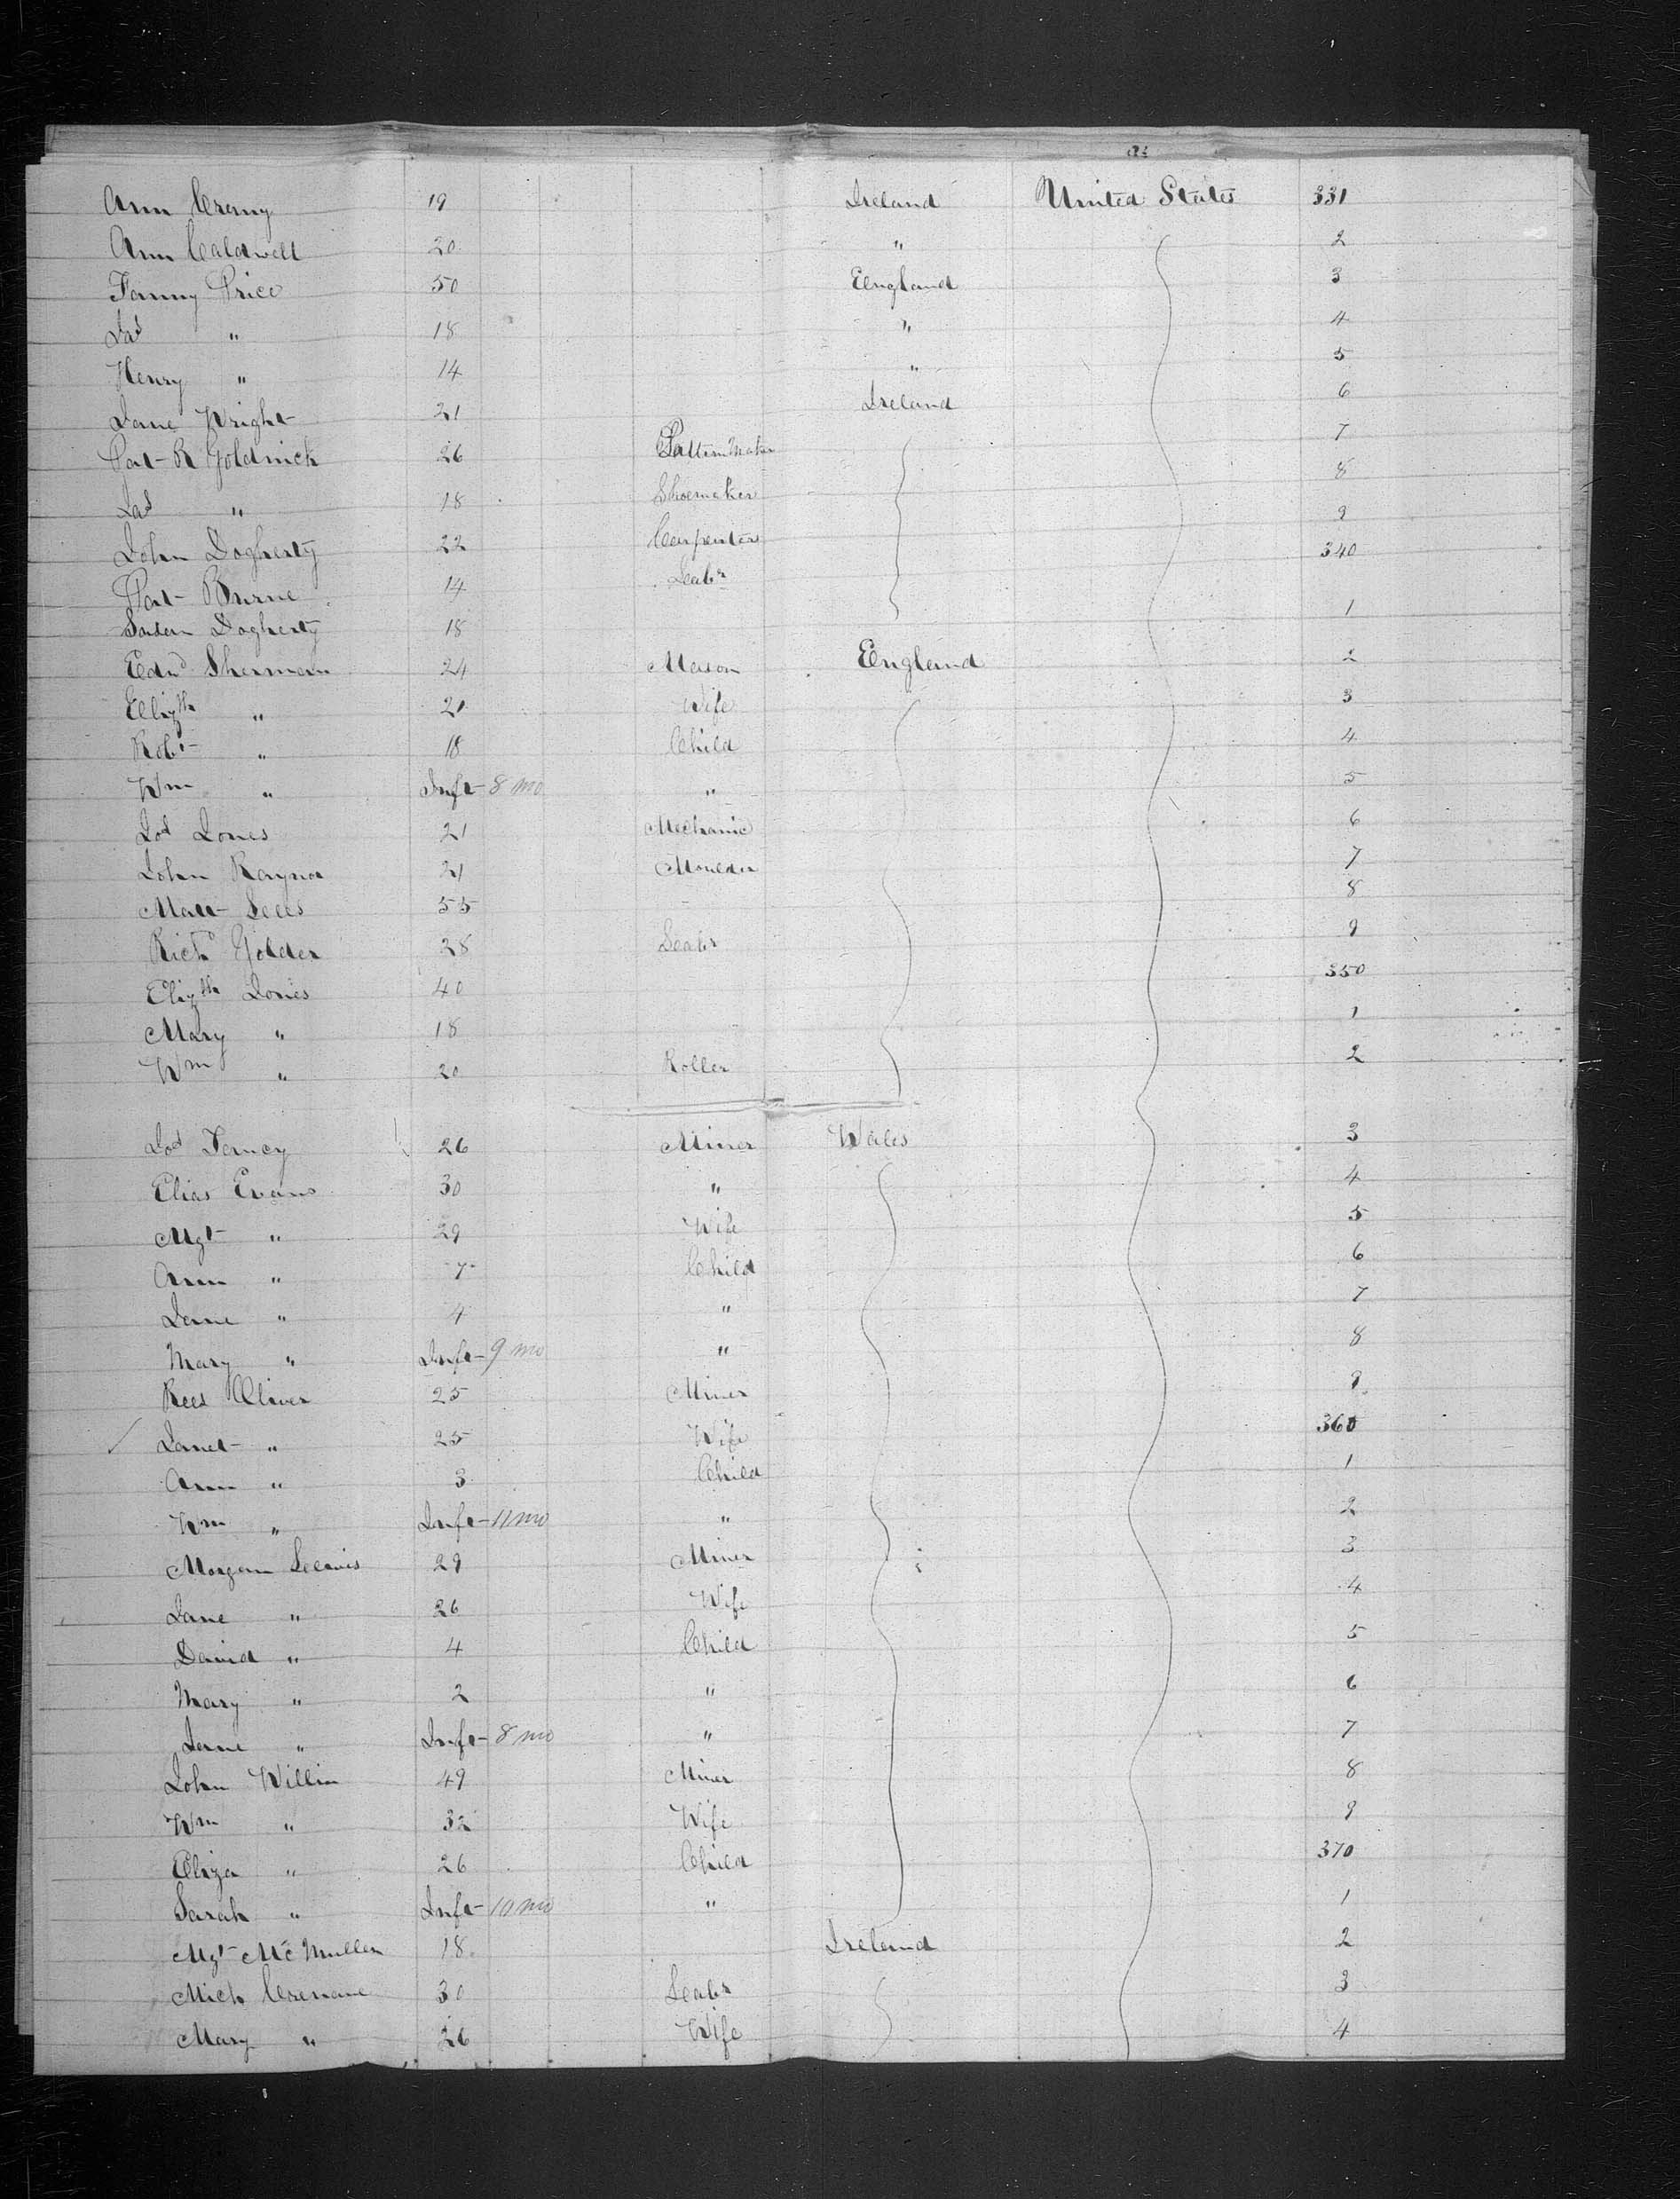 Ann Creany 19 Ireland United States 331
Ann Caldwell 20 " 2
Fanny Price 50 England 3
Jas " 18 " 4
Henry " 14 " 5
Jane Wright 21 Ireland 6
Pat R Goldrick 26 Pattern Maker 7
Jas " 18 Shoemaker 8
John Dogherty 22 Carpenter 9
Pat Burne 14 Labr 340
Dogherty 18 1
Edwd Sherman 24 Mason England 2
Elizth " 21 Wife 3
Robt " 18 Child 4
Wm " Inft 8 mo " 5
Jos Jones 21 Mechanic 6
John Raynor 21 Moulder 7
Matt Lees 55 8
Richd Golder 28 Labr 9
Elizth Jones 40 350
Mary " 18 1
Wm " 20 Roller 2
Jos 26 Miner Wales 3
Elias Evans 30 " 4
Mgt " 29 Wife 5
Ann " 7 Child 6
Jane " 4 " 7
Mary " Inft 9 mo " 8
Rees Oliver 25 Miner 9
Janet " 25 Wife 360
Ann " 3 Child 1
Wm " Inft 11 mo " 2
Morgan 29 Miner 3
Jane " 26 Wife 4
David " 4 Child 5
Mary " 2 " 6
Jane " Inft 8 mo " 7
John Willin 49 Miner 8
Wm " 32 Wife 9
Eliza " 26 Child 370
Sarah " Inft 10 mo " 1
Mgt McMullen 18 Ireland 2
Mich Crenane 30 Labr 3
Mary " 26 Wife 4